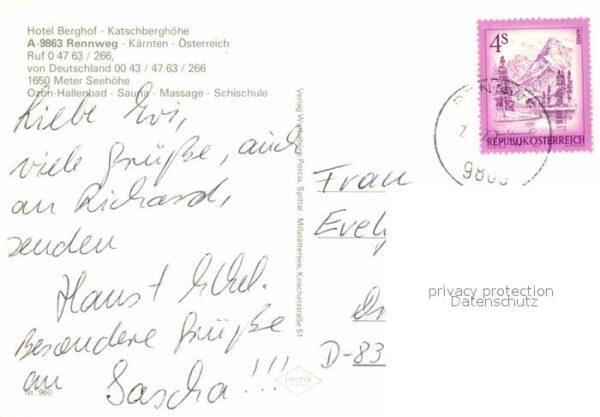 Hotel Berghof - Katschberghöhe
A-9863 Rennweg - Kärnten - Österreich
Ruf 0 47 63 / 266,
von Deutschland 00 43 / 47 63 / 266
1650 Meter Seehöhe
Ozon-Hallenbad - Sauna - Massage - Schischule
Liebe Evi,
viele Grüße, auch
an Richard,
senden
Hans +
Besondere Grüße
an Sascha!!!
Nr. 960
Verlag Porcia, Spittal - Millstättersee, Koschatstraße 51
4S
ALMSEE
REPUBLIK ÖSTERREICH
Frau
Evely
D-83
privacy protection
Datenschutz